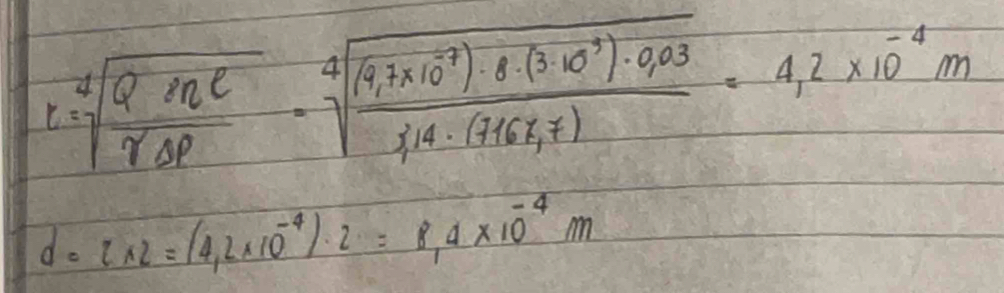 r = ⁴√(Q 8η l / π ΔP) = ⁴√((9,7×10⁻⁷) · 8 · (3·10³) · 0,03 / 3,14 · (7167,7)) = 4,2 ×10⁻⁴ m
d = r×2 = (4,2×10⁻⁴) · 2 = 8,4 ×10⁻⁴ m